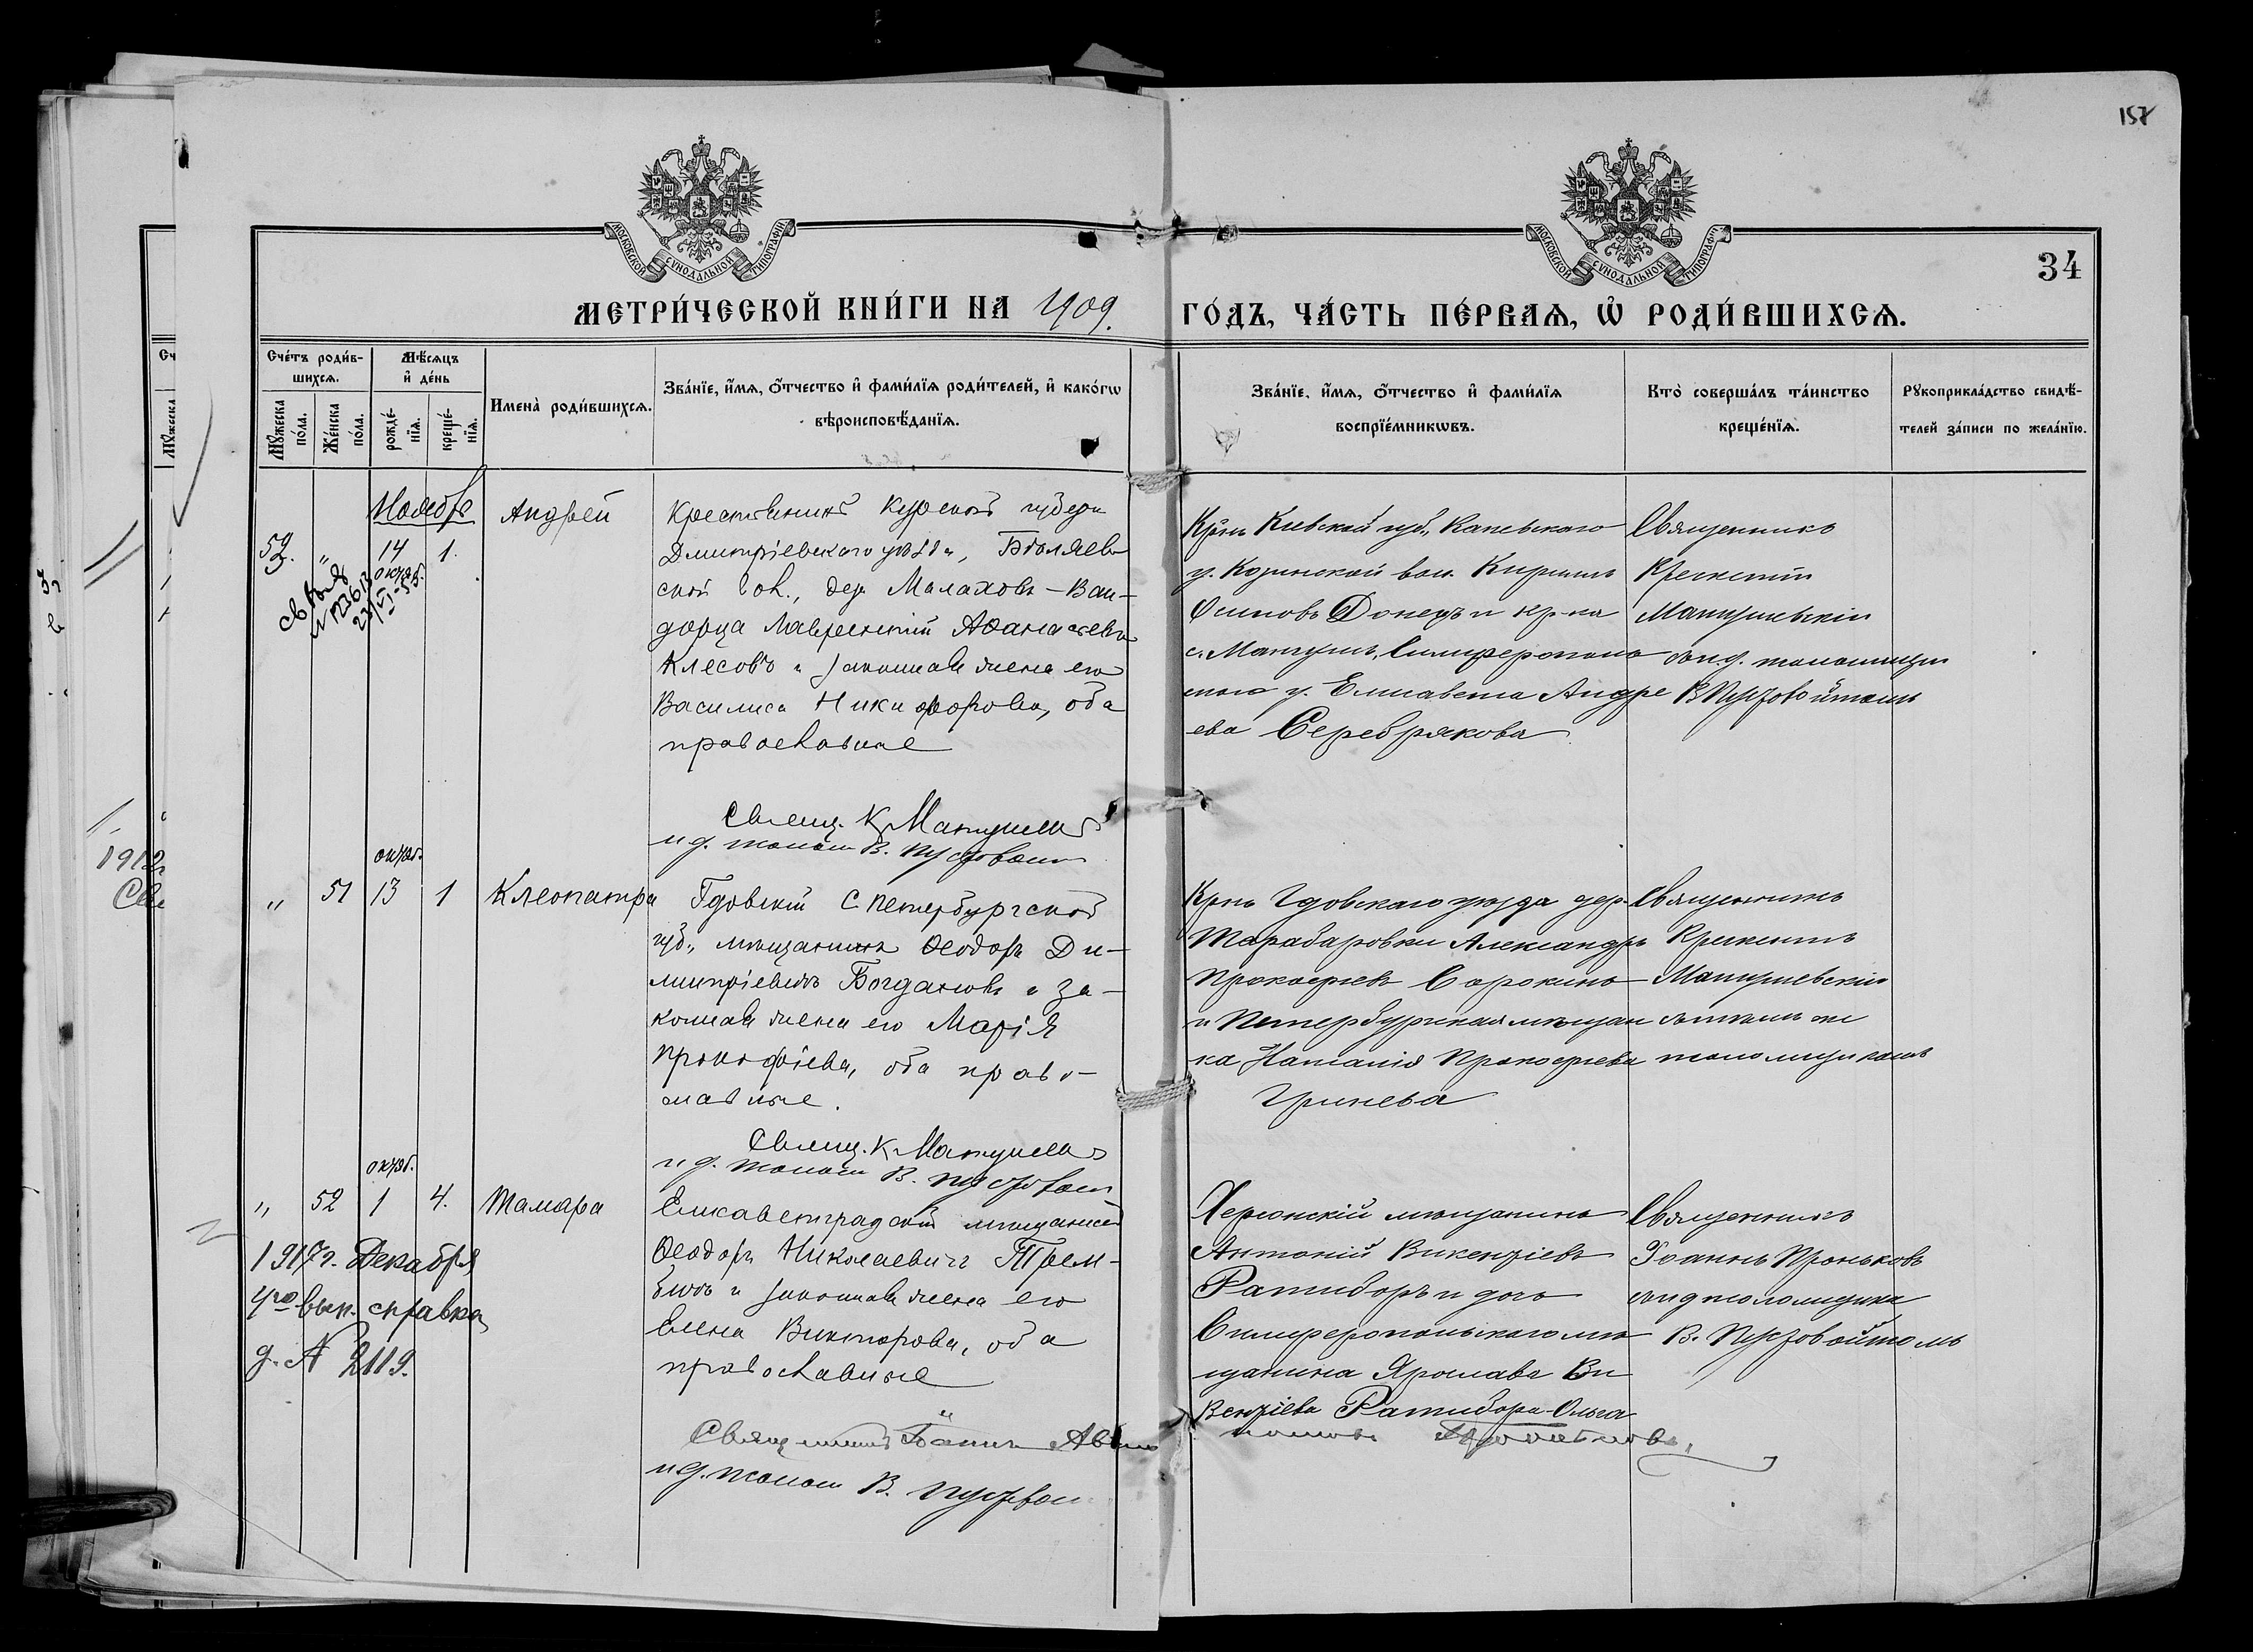 157
34
МОСКОВСКОЙ СѴНОДАЛЬНОЙ ТИПОГРАФІИ
МОСКОВСКОЙ СѴНОДАЛЬНОЙ ТИПОГРАФІИ
МЕТРИ́ЧЕСКОЙ КНИ́ГИ НА 1909.
ГО́ДЪ, ЧА́СТЬ ПЕ́РВАѦ, Ѽ РОДИ́ВШИХСѦ.
Счéтъ роди́в-
шихсѧ.
Мꙋ́жеска по́ла.
Же́нска по́ла.
Мѣ́сѧцъ
и҆ де́нь
рожде́-
нїѧ.
креще́-
нїѧ.
Имена̀ роди́вшихсѧ.
Зва́нїе, и҆́мѧ, о҆́тчество и҆ фами́лїѧ роди́телей, и҆ како́гѡ
вѣроисповѣ́данїѧ.
Зва́нїе, и҆́мѧ, о҆́тчество и҆ фами́лїѧ
воспрїе́мникѡвъ.
Кто̀ соверша́лъ та́инство
креще́нїѧ.
Рꙋкоприкла́дство свидѣ́-
телей за́писи по жела́нїю.
Ноябрь
52. " 14 1.
октяб.
Андрей
Крестьянинъ Курской губерн
Дмитріевскаго уѣзда,
ской вол., дер. Малахова-Ван-
дорца Лаврентій Аѳанасіевъ
Клесовъ и законная жена его
Василиса Никифорова, оба
православные
Свящ. К. Матушев
и д. псалом В. Пустовой
Крнъ Кіевской губ., Каневскаго
у. Козинской вол. Кириллъ
Осиповъ Донецъ и кр-ка
с. Мангушъ, Симферополь
скаго у. Елисавета Андре
ева Серебрякова
Священникъ
Крискентій
Матушевскій
съ и. д. псаломщи
В Пустовойтомъ
октяб.
" 51 13 1
Клеопатра
Гдовскій С Петербургской
губ., мѣщанинъ Ѳеодоръ Ди-
митріевичъ Богдановъ и за-
конная жена его Марія
Прокофіева, оба право-
славные.
Свящ. К. Матушев
и д. псалом В. Пустовой
Крнъ Гдовскаго уѣзда дер.
Тарабаровки Александръ
Прокофіевъ Сорокинъ
и Петербургская мѣщан
ка Наталія Прокофіева
Гринева
Священникъ
Крискентъ
Матушевскій
псаломщикомъ
октяб.
" 52 1 4.
Тамара
1917г. Декабря
4го вып. справка
д. № 2119.
Елисаветградскій мѣщанинъ
Ѳеодоръ Николаевичъ Трем-
и законная жена его
Елена Викторова, оба
православные
Священникъ Іоаннъ
и д. псалом В. Пустовой
Херсонскій мѣщанинъ
Антоній Викентіевъ
Ратиборъ и дочь
Симферопольскаго мѣ
щанина Ярослава Ви
кентіева Ратибора Ольга
Священникъ
Іоаннъ Проньковъ
съ и д псаломщика
В. Пустовойтомъ
1912г